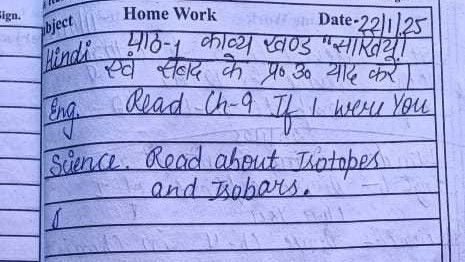 Sign.
bject Home Work Date-22/1/25
Hindi पाठ-1 काव्य खण्ड "साखियाँ
एवं सबद के प्र० उ० याद करें।
Eng. Read Ch-9 If I were You
Science. Read about Isotopes
and Isobars.